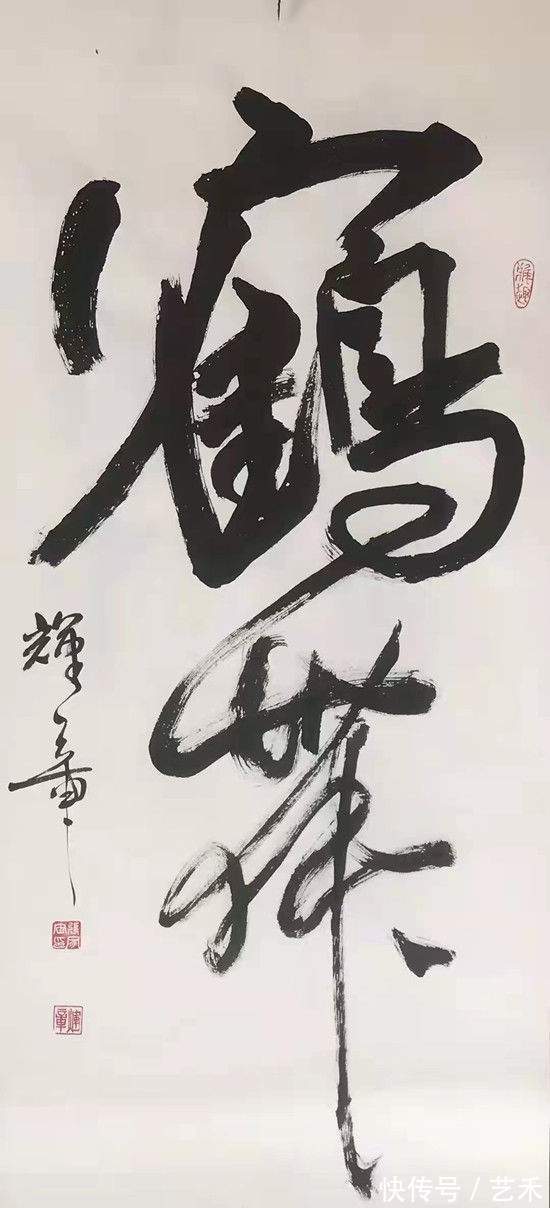 鶴舞
輝章
快传号/艺禾